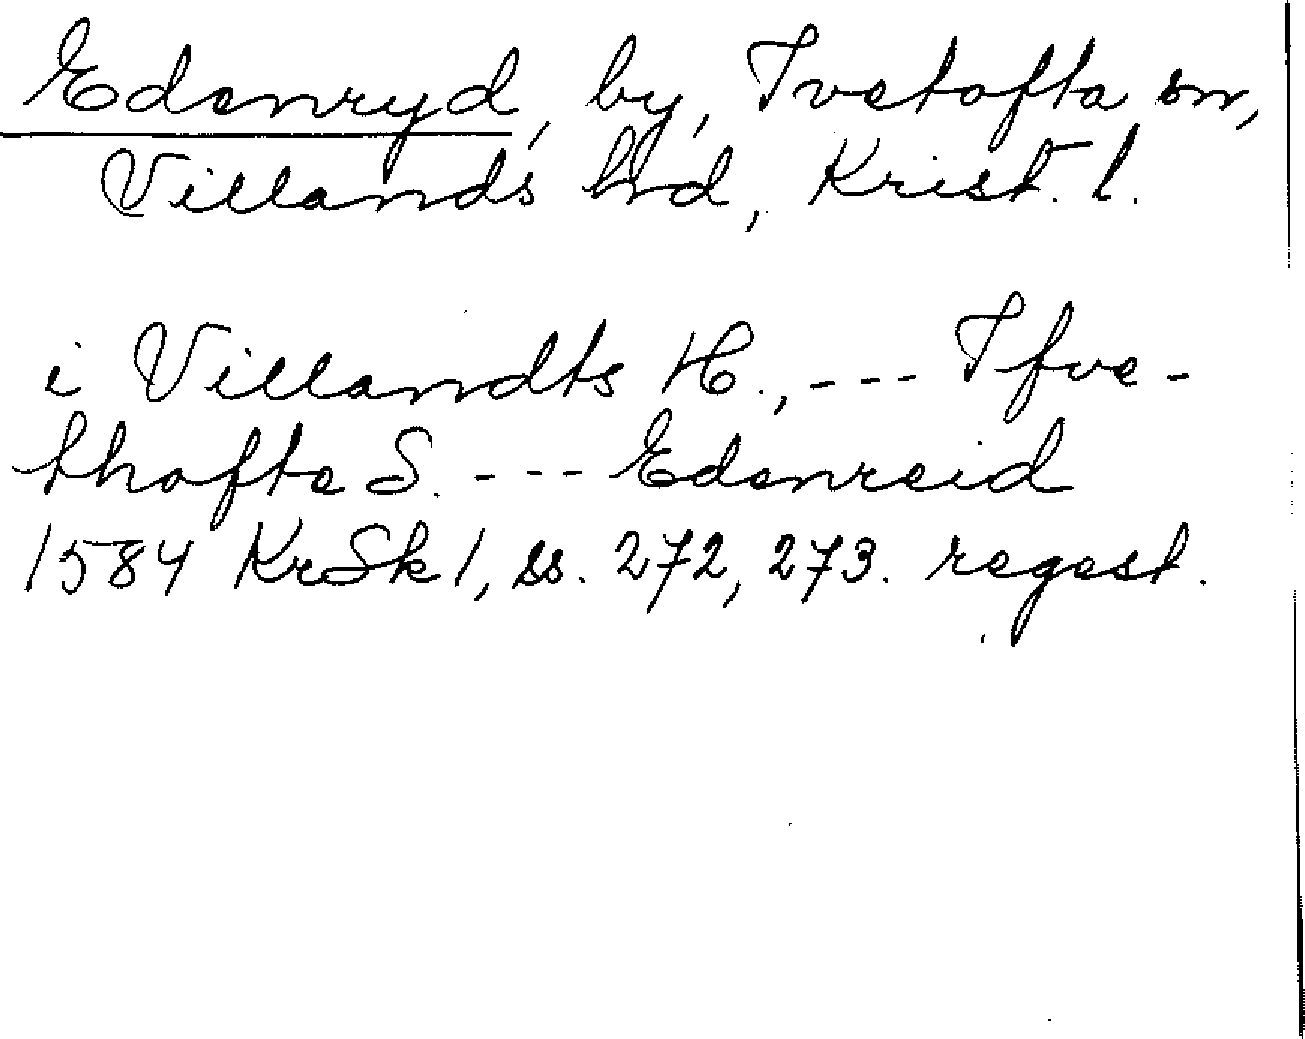 Edenryd, by, Ivetofta sn,
Villands hd, Krist. l.
i Villandts H., --- Ifve-
thofte S. --- Edenreid
1584 KrSk 1, ss. 272, 273. regest.